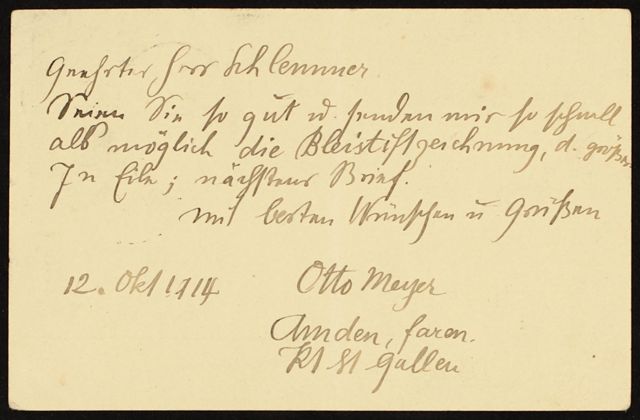 Geehrter Herr Schlemmer
Seien Sie so gut u. senden mir so schnell
als möglich die Bleistiftzeichnung, d. größere
In Eile; nächstens Brief.
mit besten Wünschen u Grüßen
12. Okt 1914 Otto Meyer
Amden, faren.
Kt St Gallen